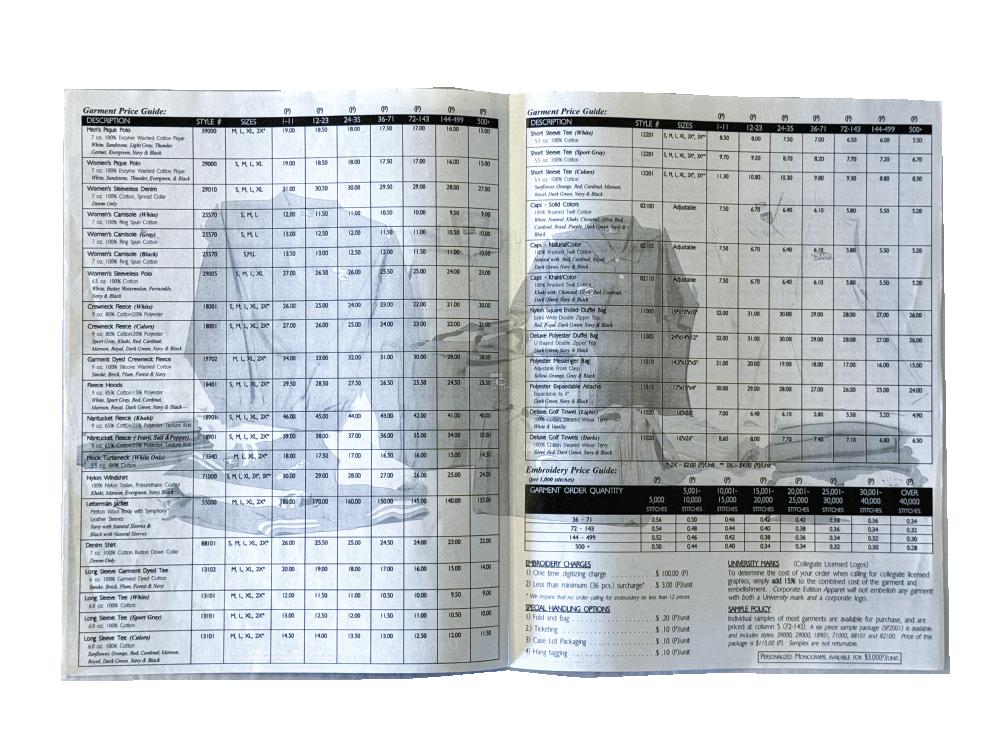 Garment Price Guide:
(P) (P) (P) (P) (P) (P)
DESCRIPTION STYLE # SIZES 1-11 12-23 24-35 36-71 72-143 144-499 500+
Men's Pique Polo 39000 M, L, XL, 2X* 19.00 18.50 18.00 17.50 17.00 16.00 15.00
7 oz. 100% Enzyme Washed Cotton Pique
White, Sandstone, Light Gray, Thunder,
Garnet, Evergreen, Navy & Black
Women's Pique Polo 29000 S, M, L, XL 19.00 18.50 18.00 17.50 17.00 16.00 15.00
7 oz. 100% Enzyme Washed Cotton Pique
White, Sandstone, Thunder, Evergreen, & Black
Women's Sleeveless Denim 29010 S, M, L, XL 31.00 30.50 30.00 29.50 29.00 28.00 27.00
7 oz. 100% Cotton, Spread Collar
Denim Only
Women's Camisole (White) 25570 S, M, L 12.00 11.50 11.00 10.50 10.00 9.50 9.00
7 oz. 100% Ring Spun Cotton
Women's Camisole (Gray) 25570 S, M, L 13.00 12.50 12.00 11.50 11.00 10.50 10.00
7 oz. 100% Ring Spun Cotton
Women's Camisole (Black) 25570 S,M,L 13.50 13.00 12.50 12.00 11.50 11.00 10.50
7 oz. 100% Ring Spun Cotton
Women's Sleeveless Polo 29005 S, M, L, XL 27.00 26.50 26.00 25.50 25.00 24.00 23.00
6.5 oz. 100% Cotton
White, Butter, Watermelon, Periwinkle,
Navy & Black
Crewneck Fleece (White) 18001 S, M, L, XL, 2X* 26.00 25.00 24.00 23.00 22.00 21.00 20.00
9 oz. 80% Cotton/20% Polyester
Crewneck Fleece (Colors) 18001 S, M, L, XL, 2X* 27.00 26.00 25.00 24.00 23.00 22.00 21.00
9 oz. 80% Cotton/20% Polyester
Sport Gray, Khaki, Red, Cardinal,
Maroon, Royal, Dark Green, Navy & Black
Garment Dyed Crewneck Fleece 19702 M, L, XL, 2X* 34.00 33.00 32.00 31.00 30.00 29.00 28.00
9 oz. 100% Silicone Washed Cotton
Smoke, Brick, Plum, Forest & Navy
Fleece Hoods 18401 S, M, L, XL, 2X* 29.50 28.50 27.50 26.50 25.50 24.50 23.50
9 oz. 85% Cotton/15% Polyester
White, Sport Gray, Red, Cardinal,
Maroon, Royal, Dark Green, Navy & Black
Nantucket Fleece (Khaki) 18901 S, M, L, XL, 2X* 46.00 45.00 44.00 43.00 42.00 41.00 40.00
9 oz. 65% Cotton/35% Polyester Texture Knit
Nantucket Fleece (Ivory, Salt & Pepper) 18901 S, M, L, XL, 2X* 39.00 38.00 37.00 36.00 35.00 34.00 33.00
9 oz. 65% Cotton/35% Polyester Texture Knit
Mock Turteneck (White Only) 13340 M, L, XL, 2X* 18.50 18.00 17.50 16.50 16.00 15.00 14.50
5.5 oz. 100% Cotton
Nylon Windshirt 71000 S, M, L, XL, 2X* 30.00 29.00 28.00 27.00 26.00 25.00 24.00
100% Nylon Teslan, Polyurethane Coated
Khaki, Maroon, Evergreen, Navy & Black
Letterman Jacket 55000 M, L, XL, 2X* 180.00 170.00 160.00 150.00 145.00 140.00 135.00
Melton Wool Body with Symphony
Leather Sleeves
Navy with Natural Sleeves &
Black with Natural Sleeves
Denim Shirt 88101 S, M, L, XL, 2X* 26.00 25.50 25.00 24.50 24.00 23.00 22.00
7 oz. 100% Cotton Button Down Collar
Denim Only
Long Sleeve Garment Dyed Tee 13102 M, L, XL, 2X* 20.00 19.00 18.00 17.00 16.00 15.00 14.00
6 oz. 100% Garment Dyed Cotton
Smoke, Brick, Plum, Forest & Navy
Long Sleeve Tee (White) 13101 M, L, XL, 2X* 12.00 11.50 11.00 10.50 10.00 9.50 9.00
6.0 oz. 100% Cotton
Long Sleeve Tee (Sport Gray) 13101 M, L, XL, 2X* 13.00 12.50 12.00 11.50 11.00 10.50 10.00
6.0 oz. 100% Cotton
Long Sleeve Tee (Colors) 13101 M, L, XL, 2X* 14.50 14.00 13.50 13.00 12.50 12.00 11.50
6.0 oz. 100% Cotton
Sunflower, Orange, Red, Cardinal, Maroon,
Royal, Dark Green, Navy & Black
Garment Price Guide:
(P) (P) (P) (P) (P) (P) (P)
DESCRIPTION STYLE # SIZES 1-11 12-23 24-35 36-71 72-143 144-499 500+
Short Sleeve Tee (White) 12201 S, M, L, XL, 2X*, 3X** 8.50 8.00 7.50 7.00 6.50 6.00 5.50
5.5 oz. 100% Cotton
Short Sleeve Tee (Sport Gray) 12201 S, M, L, XL, 2X*, 3X** 9.70 9.20 8.70 8.20 7.70 7.20 6.70
5.5 oz. 100% Cotton
Short Sleeve Tee (Colors) 12201 S, M, L, XL, 2X*, 3X** 11.30 10.80 10.30 9.80 9.30 8.80 8.30
5.5 oz. 100% Cotton
Sunflower, Orange, Red, Cardinal, Maroon,
Royal, Dark Green, Navy & Black
Caps - Solid Colors 82100 Adjustable 7.50 6.70 6.40 6.10 5.80 5.50 5.20
100% Brushed Twill Cotton
White, Natural, Khaki, Charcoal, Olive, Red,
Cardinal, Royal, Purple, Dark Green, Navy &
Black
Caps - Natural/Color 82105 Adjustable 7.50 6.70 6.40 6.10 5.80 5.50 5.20
100% Brushed Twill Cotton
Natural with: Red, Cardinal, Royal,
Dark Green, Navy & Black
Caps - Khaki/Color 82110 Adjustable 7.50 6.70 6.40 6.10 5.80 5.50 5.20
100% Brushed Twill Cotton
Khaki with: Charcoal, Olive, Red, Cardinal,
Dark Green, Navy & Black
Nylon Square Ended Duffel Bag 11000 32.00 31.00 30.00 29.00 28.00 27.00 26.00
Extra Wide Double Zipper Top
Red, Royal, Dark Green, Navy & Black
Deluxe Polyester Duffel Bag 11005 32.00 31.00 30.00 29.00 28.00 27.00 26.00
U-Shaped Double Zipper Top
Dark Green, Navy & Black
Polyester Messenger Bag 11010 21.00 20.00 19.00 18.00 17.00 16.00 15.00
Adjustable Front Clasp
Yellow, Orange, Grey & Black
Polyester Expandable Attache 11015 30.00 29.00 28.00 27.00 26.00 25.00 24.00
Expandable to 6"
Dark Green, Navy & Black
Deluxe Golf Towel (Lights) 11020 16"x26" 7.00 6.40 6.10 5.80 5.50 5.20 4.90
100% Cotton Sheared Velour Terry
White & Vanilla
Deluxe Golf Towels (Darks) 11020 16"x26" 8.60 8.00 7.70 7.40 7.10 6.80 6.50
100% Cotton Sheared Velour Terry
Silver, Red, Dark Green, Navy & Black
* 2X - $2.00 (P)/Unit ** 3X - $4.00 (P)/Unit
Embroidery Price Guide:
(per 1,000 stitches) (P) (P) (P) (P) (P) (P) (P) (P)
GARMENT ORDER QUANTITY 5,000 STITCHES 5,001-10,000 STITCHES 10,001-15,000 STITCHES 15,001-20,000 STITCHES 20,001-25,000 STITCHES 25,001-30,000 STITCHES 30,001-40,000 STITCHES OVER 40,000 STITCHES
36 - 71 0.56 0.50 0.46 0.42 0.40 0.38 0.36 0.34
72 - 143 0.54 0.48 0.44 0.40 0.38 0.36 0.34 0.32
144 - 499 0.52 0.46 0.42 0.38 0.36 0.34 0.32 0.30
500 + 0.50 0.44 0.40 0.34 0.34 0.32 0.30 0.28
EMBROIDERY CHARGES
1) One time digitizing charge . . . . . . . . . . $ 100.00 (P)
2) Less than minimum (36 pcs.) surcharge* . . $ 3.00 (P)/unit
* We require that no order calling for embroidery be less than 12 pieces
SPECIAL HANDLING OPTIONS
1) Fold and Bag . . . . . . . . . . $ .20 (P)/unit
2) Ticketing . . . . . . . . . . $ .10 (P)/unit
3) Case Lot Packaging . . . . . . . . . . $ .10 (P)/unit
4) Hang tagging . . . . . . . . . . $ .10 (P)/unit
UNIVERSITY MARKS (Collegiate Licensed Logos)
To determine the cost of your order when calling for collegiate licensed
graphics, simply add 15% to the combined cost of the garment and
embellishment. Corporate Edition Apparel will not embellish any garment
with both a University mark and a corporate logo.
SAMPLE POLICY
Individual samples of most garments are available for purchase, and are
priced at column 5 (72-143). A six piece sample package (SP2001) is available
and includes styles, 39000, 29000, 18901, 71000, 88101 and 82100. Price of this
package is $115.00 (P). Samples are not returnable.
PERSONALIZED MONOGRAMS AVAILABLE FOR $3.00(P)/UNIT.